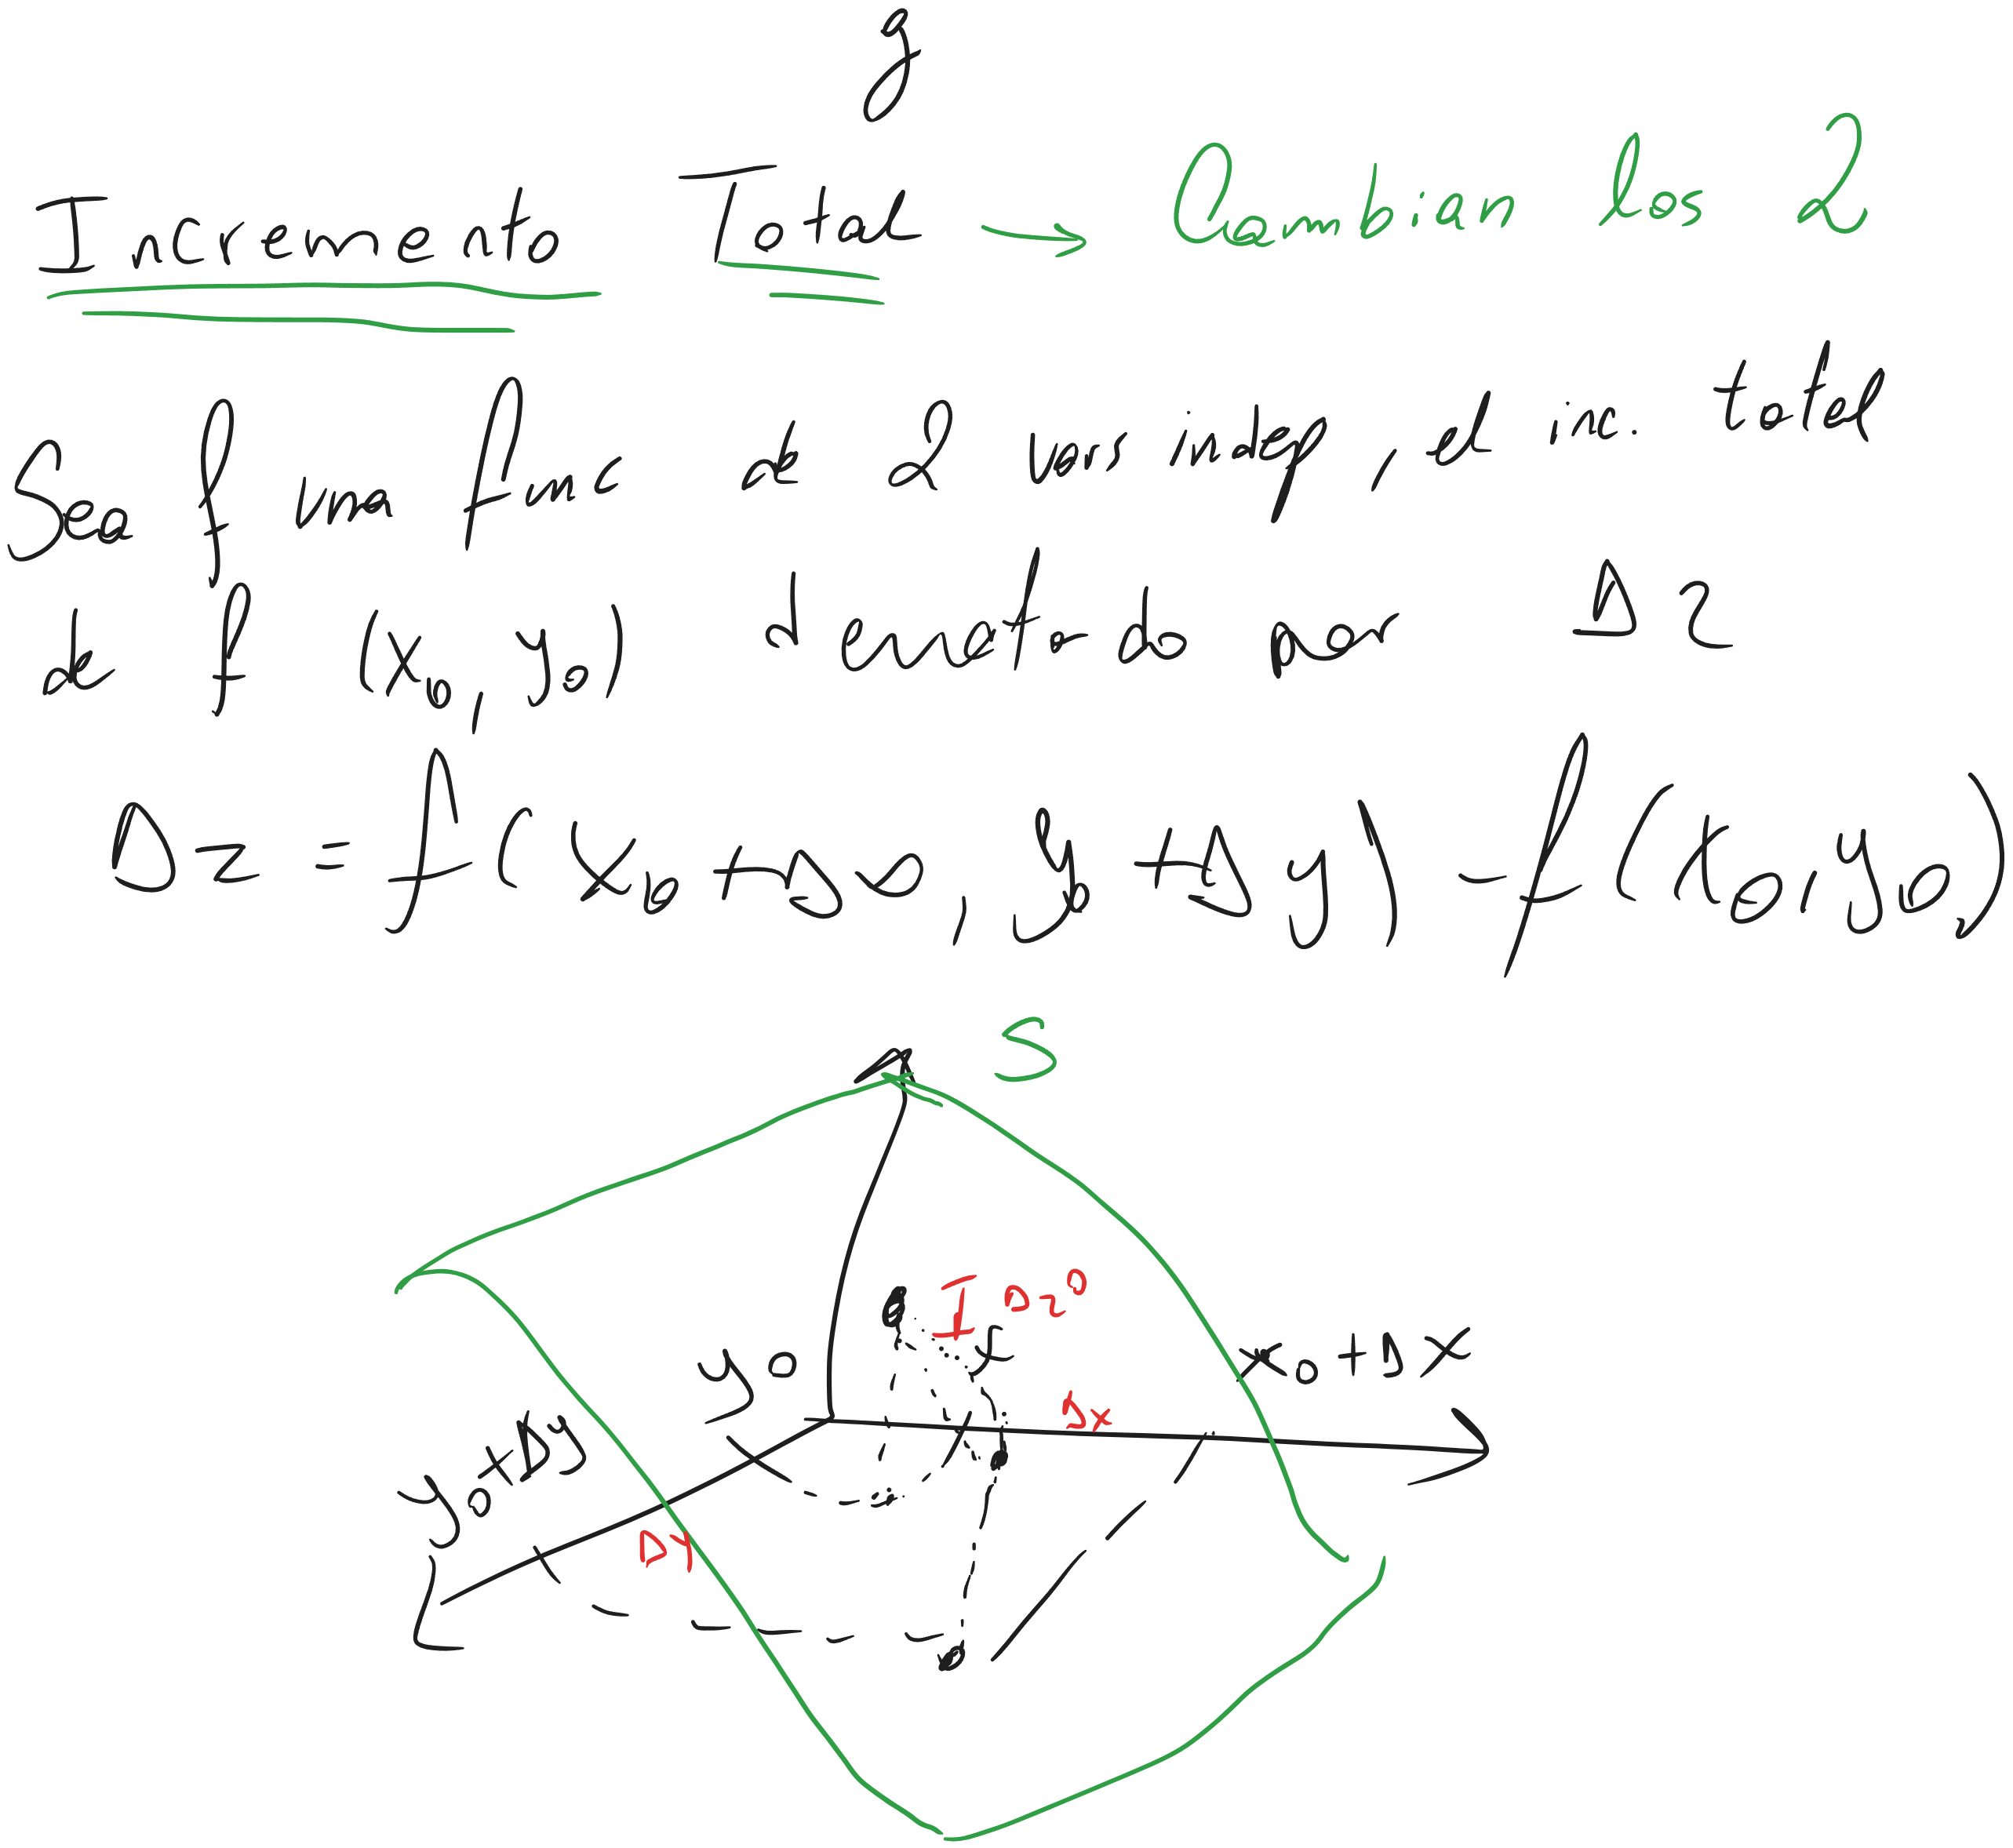 z
Incremento Total → Cambian los 2
Sea f una func de 2 vars indep, el inc. total
de f (x0, y0) denotado por Δz
Δz = f(x0+Δx, y0+Δy) - f(x0, y0)
S
Δz
y0
x0+Δx
Δx
y0+Δy
Δy